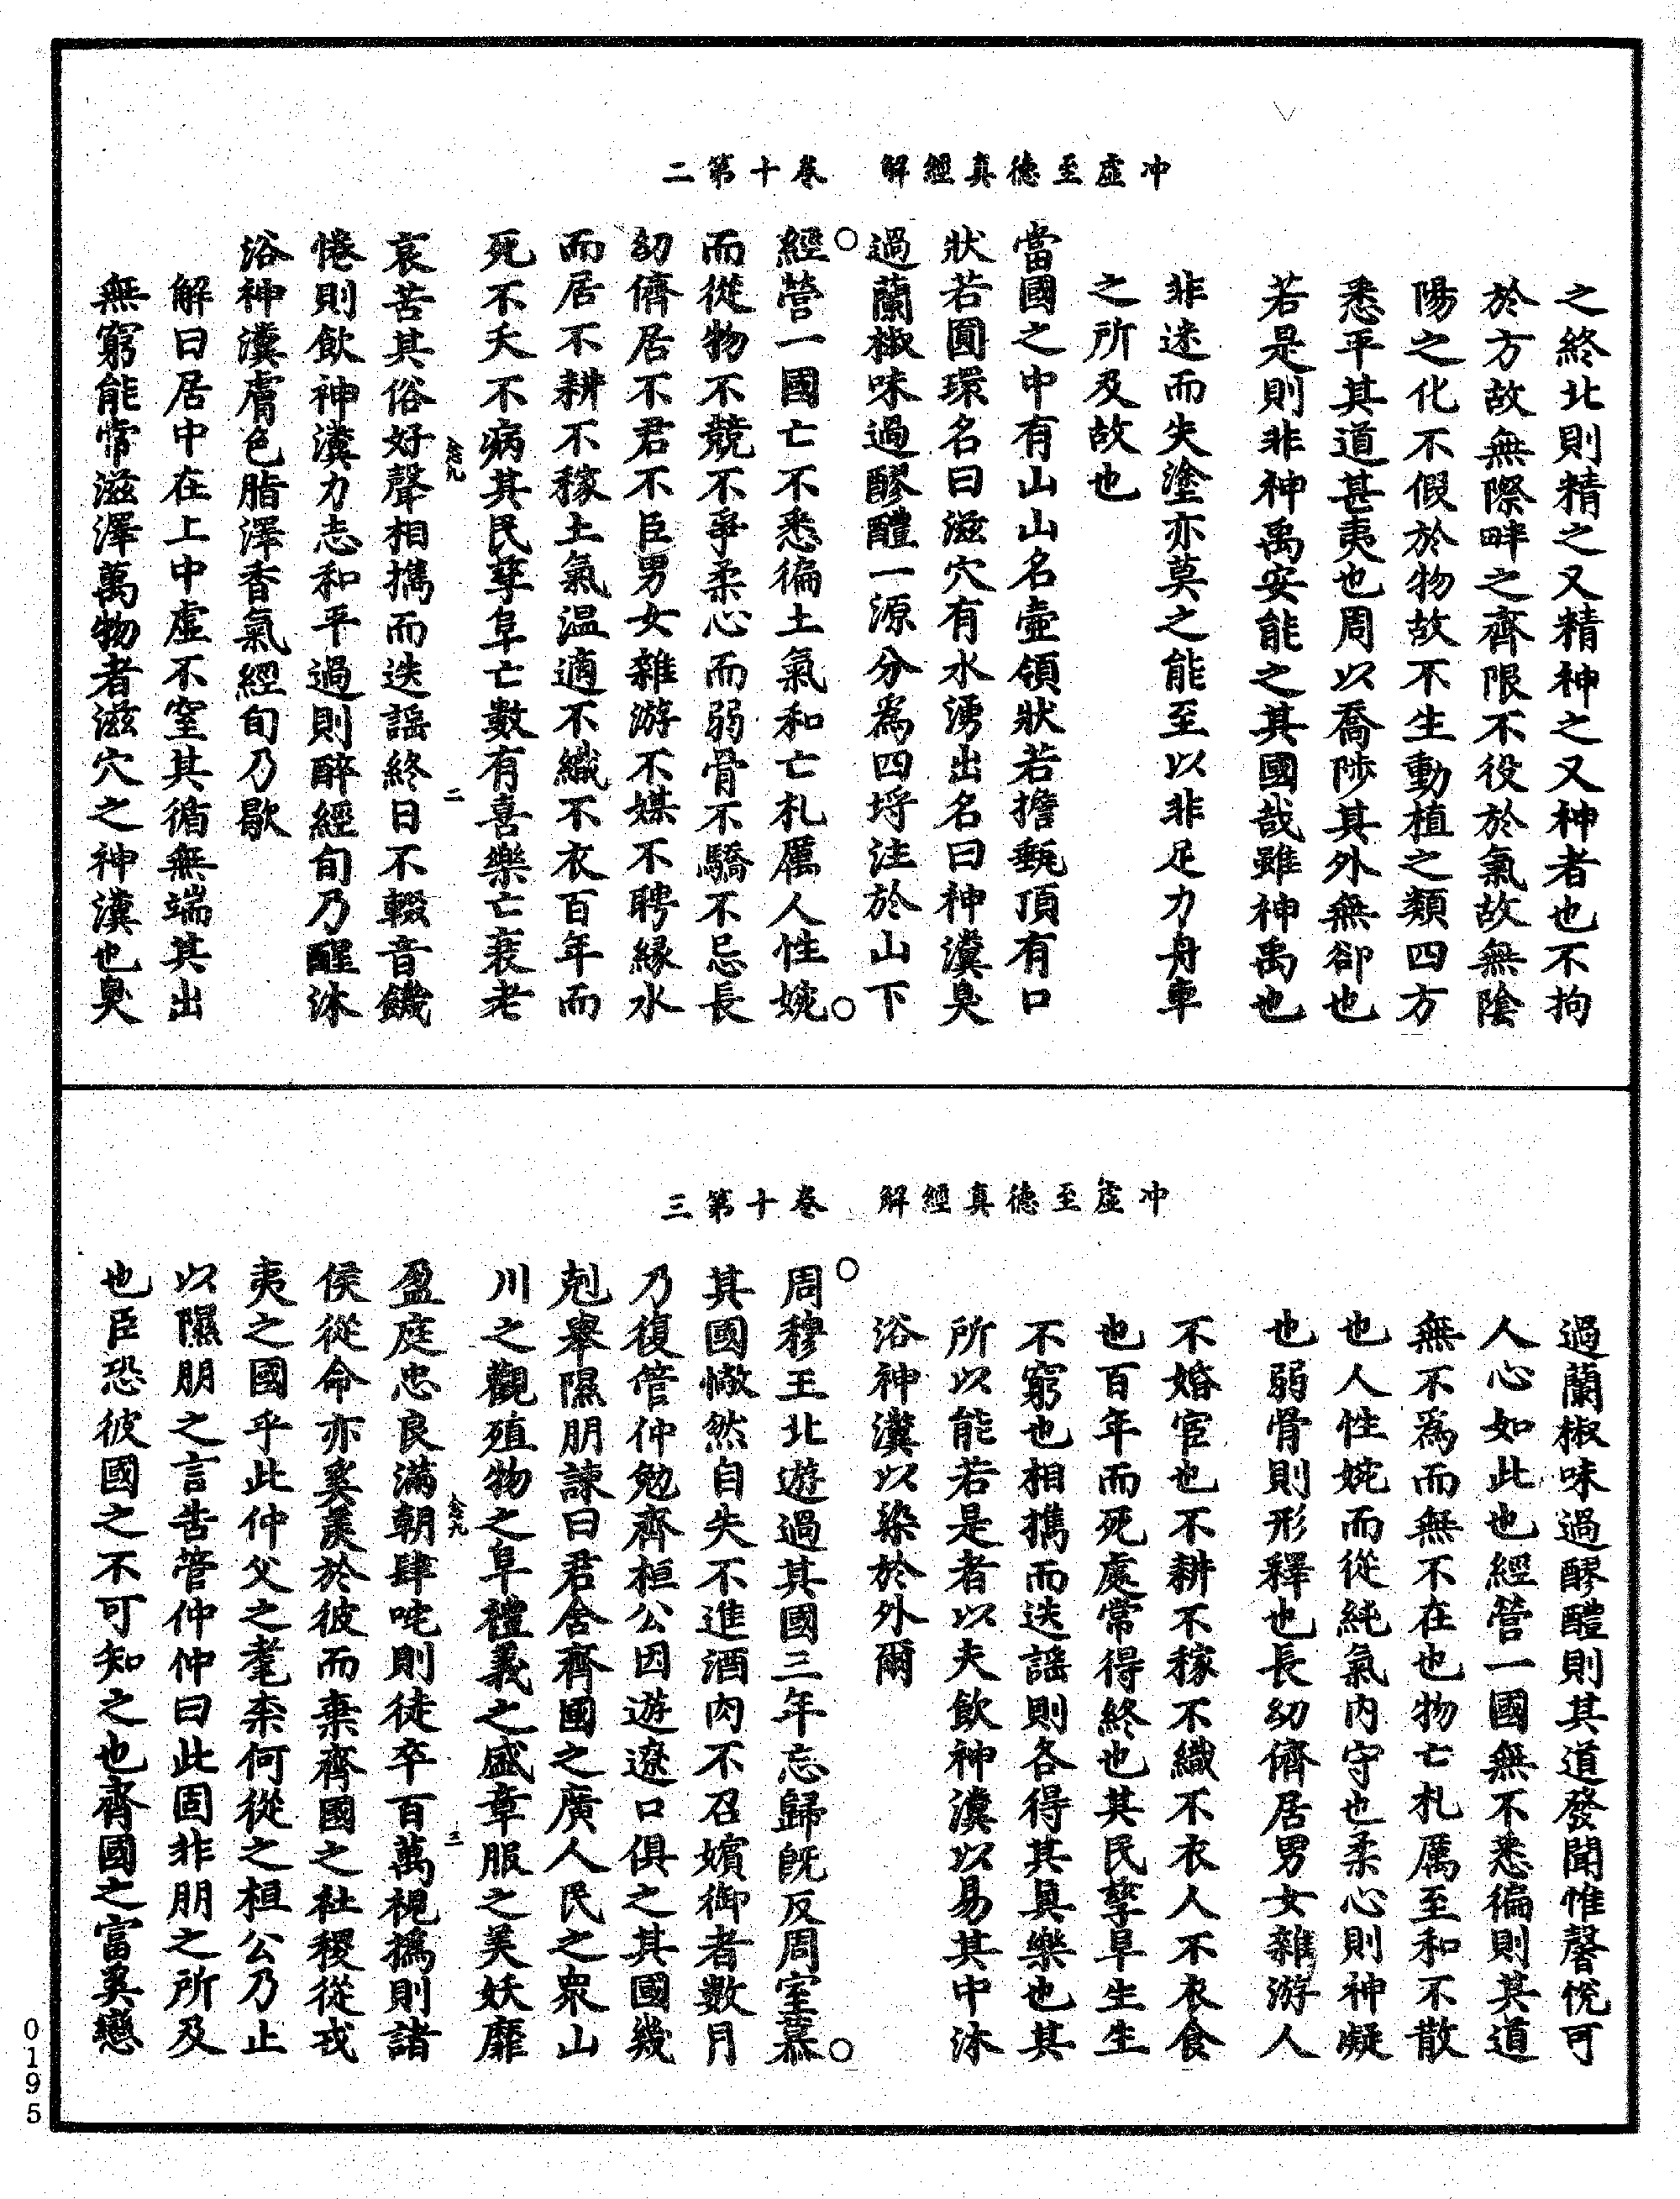 冲虛至德真經解　卷十第二
之終北則精之又精神之又神者也不拘
於方故無際畔之齊限不役於氣故無陰
陽之化不假於物故不生動植之類四方
悉平其道甚夷也周以喬陟其外無卻也
若是則非神禹安能之其國哉雖神禹也
非迷而失塗亦莫之能至以非足力舟車
之所及故也
當國之中有山山名壺領狀若擔甀頂有口
狀若圓環名曰滋穴有水湧出名曰神瀵臭
過蘭椒味過醪醴一源分為四埒注於山下
○經營一國亡不悉徧土氣和亡札厲人性婉○
而從物不競不爭柔心而弱骨不驕不忌長
幼儕居不君不臣男女雜游不媒不聘緣水
而居不耕不稼土氣温適不織不衣百年而
死不夭不病其民孳阜亡數有喜樂亡衰老
哀苦其俗好聲相擕而迭謡終日不輟音饑
二
惓則飲神瀵力志和平過則醉經旬乃醒沐
浴神瀵膚色脂澤香氣經旬乃歇
解曰居中在上中虛不窒其循無端其出
無窮能常滋澤萬物者滋穴之神瀵也臭
冲虛至德真經解　卷十第三
過蘭椒味過醪醴則其道發聞惟馨悅可
人心如此也經營一國無不悉徧則其道
無不為而無不在也物亡札厲至和不散
也人性婉而從純氣內守也柔心則神凝
也弱骨則形釋也長幼儕居男女雜游人
不婚宦也不耕不稼不織不衣人不衣食
也百年而死處常得終也其民孳阜生生
不窮也相擕而迭謡則各得其真樂也其
所以能若是者以夫飲神瀵以易其中沐
浴神瀵以染於外爾
○周穆王北遊過其國三年忘歸旣反周室慕○
其國憿然自失不進酒肉不召嬪御者數月
乃復管仲勉齊桓公因遊遼口俱之其國幾
剋舉隰朋諫曰君舍齊國之廣人民之衆山
川之觀殖物之阜禮義之盛章服之美妖靡
盈庭忠良滿朝肆咤則徒卒百萬視撝則諸
三
侯從命亦奚羨於彼而棄齊國之社稷從戎
夷之國乎此仲父之耄柰何從之桓公乃止
以隰朋之言告管仲仲曰此固非朋之所及
也臣恐彼國之不可知之也齊國之富奚戀
0195